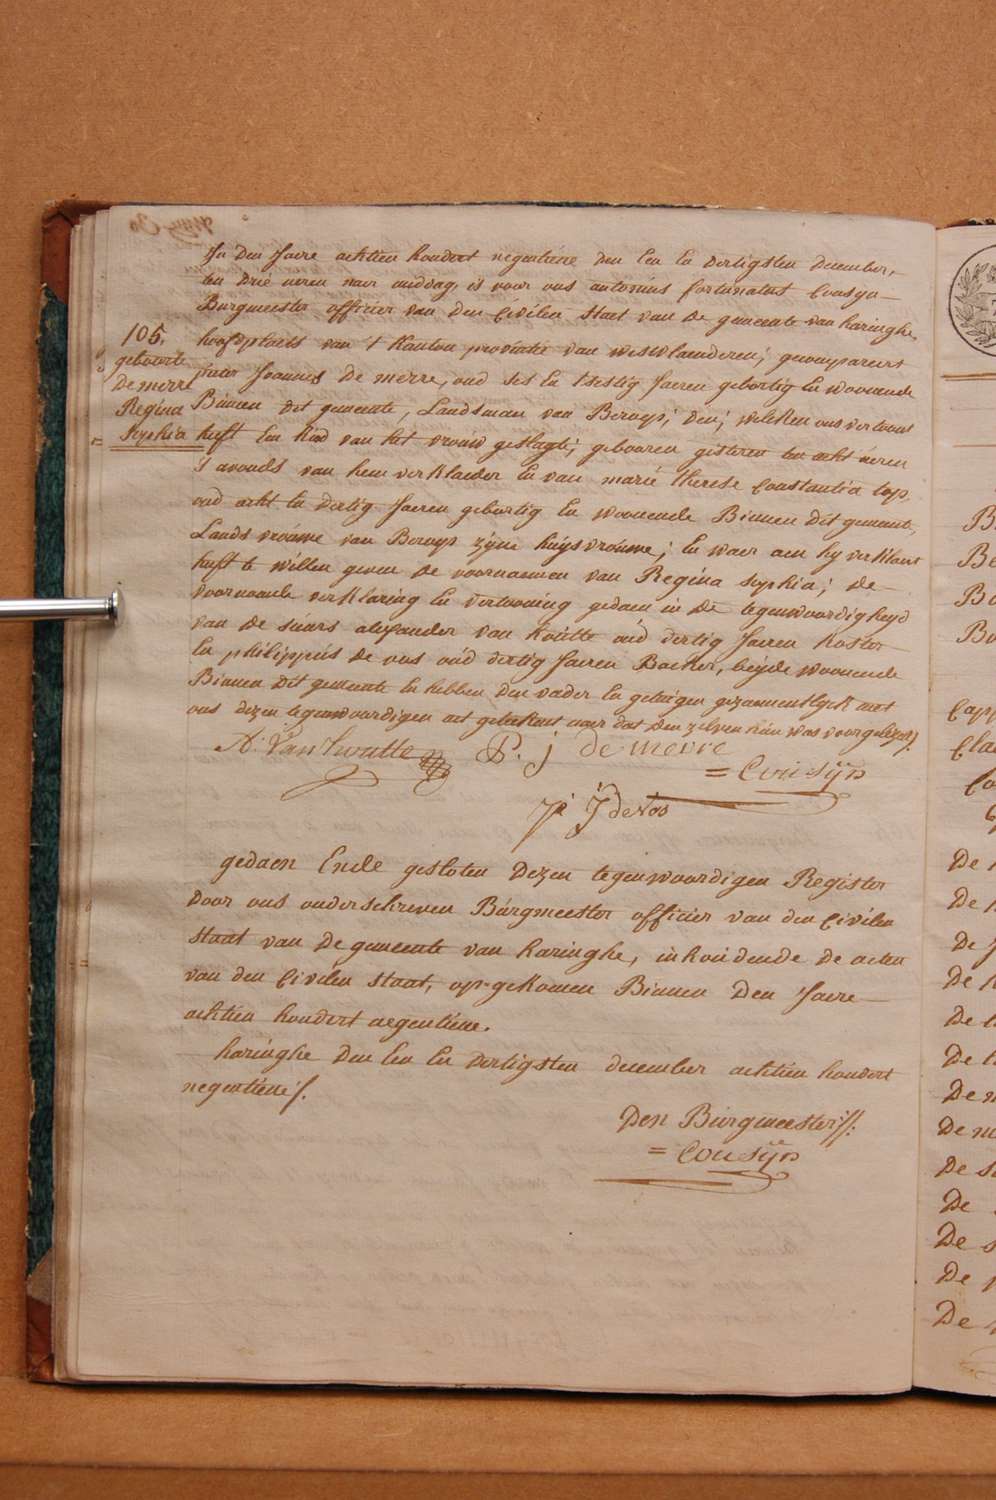 In Den Jaere achtien hondert negentiene den Een En dertigsten december,
ten drie uren naer middag, is voor ons antonius fortunatus Cousyn
Burgmeester officier van den Civilen Staet van de gemeente van haringhe,
105.
geboorte
De merre
Regina
Sophia
hoofdplaets van 't Kanton provintie van westvlaenderen; gecompareert
pieter Joannes De merre, oud ses En tsestig Jaeren gebortig En woonende
Binnen dit gemeente, Landsman van Beroep; den; welken ons vertoont
heeft Een kind van het vrouw geslagte; gebooren gisteren ten acht ueren
's avonds van hem verklaeder En van marie therese Constantia top
oud acht En dertig Jaeren gebortig En woonende Binnen dit gemeente,
Lands vrouwe van Beroep zyne huysvrouwe; En waer aen hy verklaert
heeft te willen geven de voornaemen van Regina Sophia; de
voornoemde verklaring En vertooning gedaen in de tegenwoordigheyd
van de sieurs alexander van houtte oud dertig Jaeren koster
En philippus de vos oud dertig Jaeren Backer, beyde woonende
Binnen dit gemeente En hebben den vader En getuigen gezaementlyck met
ons dezen tegenwoordigen act geteekent naer dat den zelven hun was voorgelezen /.
A: Van houtte P. j de merre
= Cousijn
p: J de Vos
gedaen Ende gesloten Dezen tegenwoordigen Register
Door ons onderschreven Burgmeester officier van den Civilen
Staat van de gemeente van haringhe, inhoudende de acten
van den Civilen Staat, op-gekomen Binnen Den Jaere
achtien hondert negentiene.
haringhe Den Een En Dertigsten december achtien hondert
negentiene /.
Den Burgmeester //:
= Cousijn
De
De
De
De
De
De
De
De
De
De
De
De
De